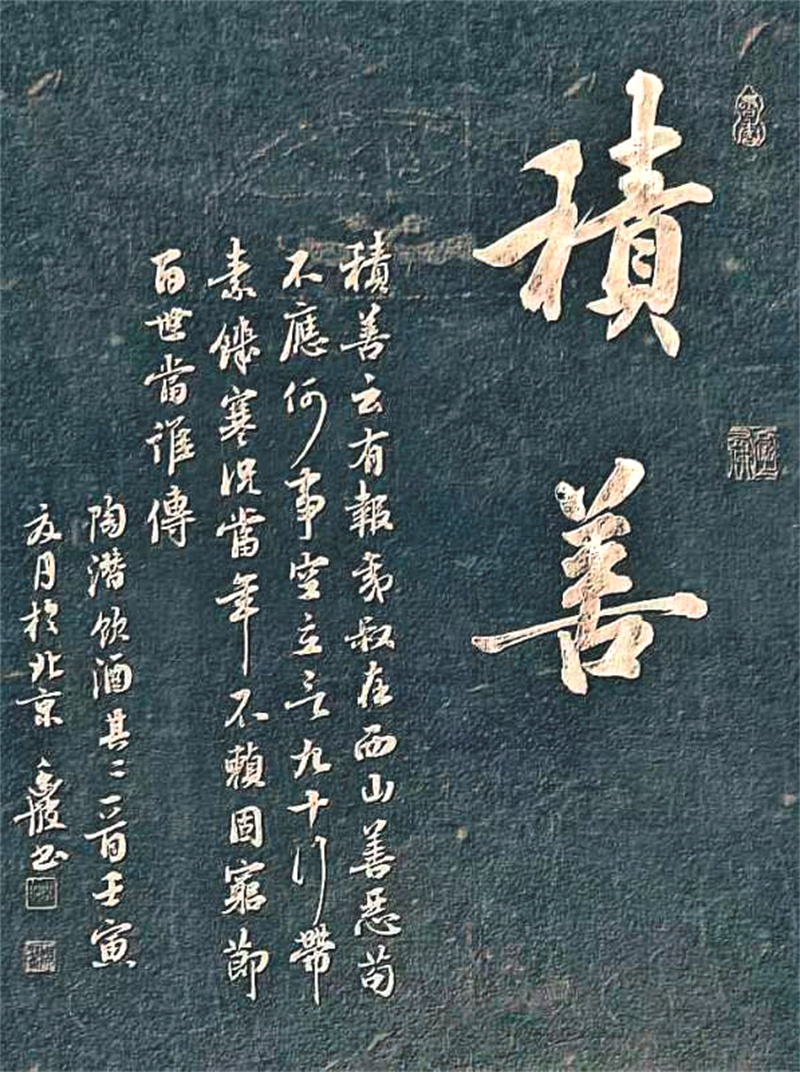 積善
積善云有報夷叔在西山善惡苟
不應何事空立言九十行帶
索饑寒況當年不賴固窮節
百世當誰傳
陶潛飲酒其二一首壬寅
夏月於北京 书